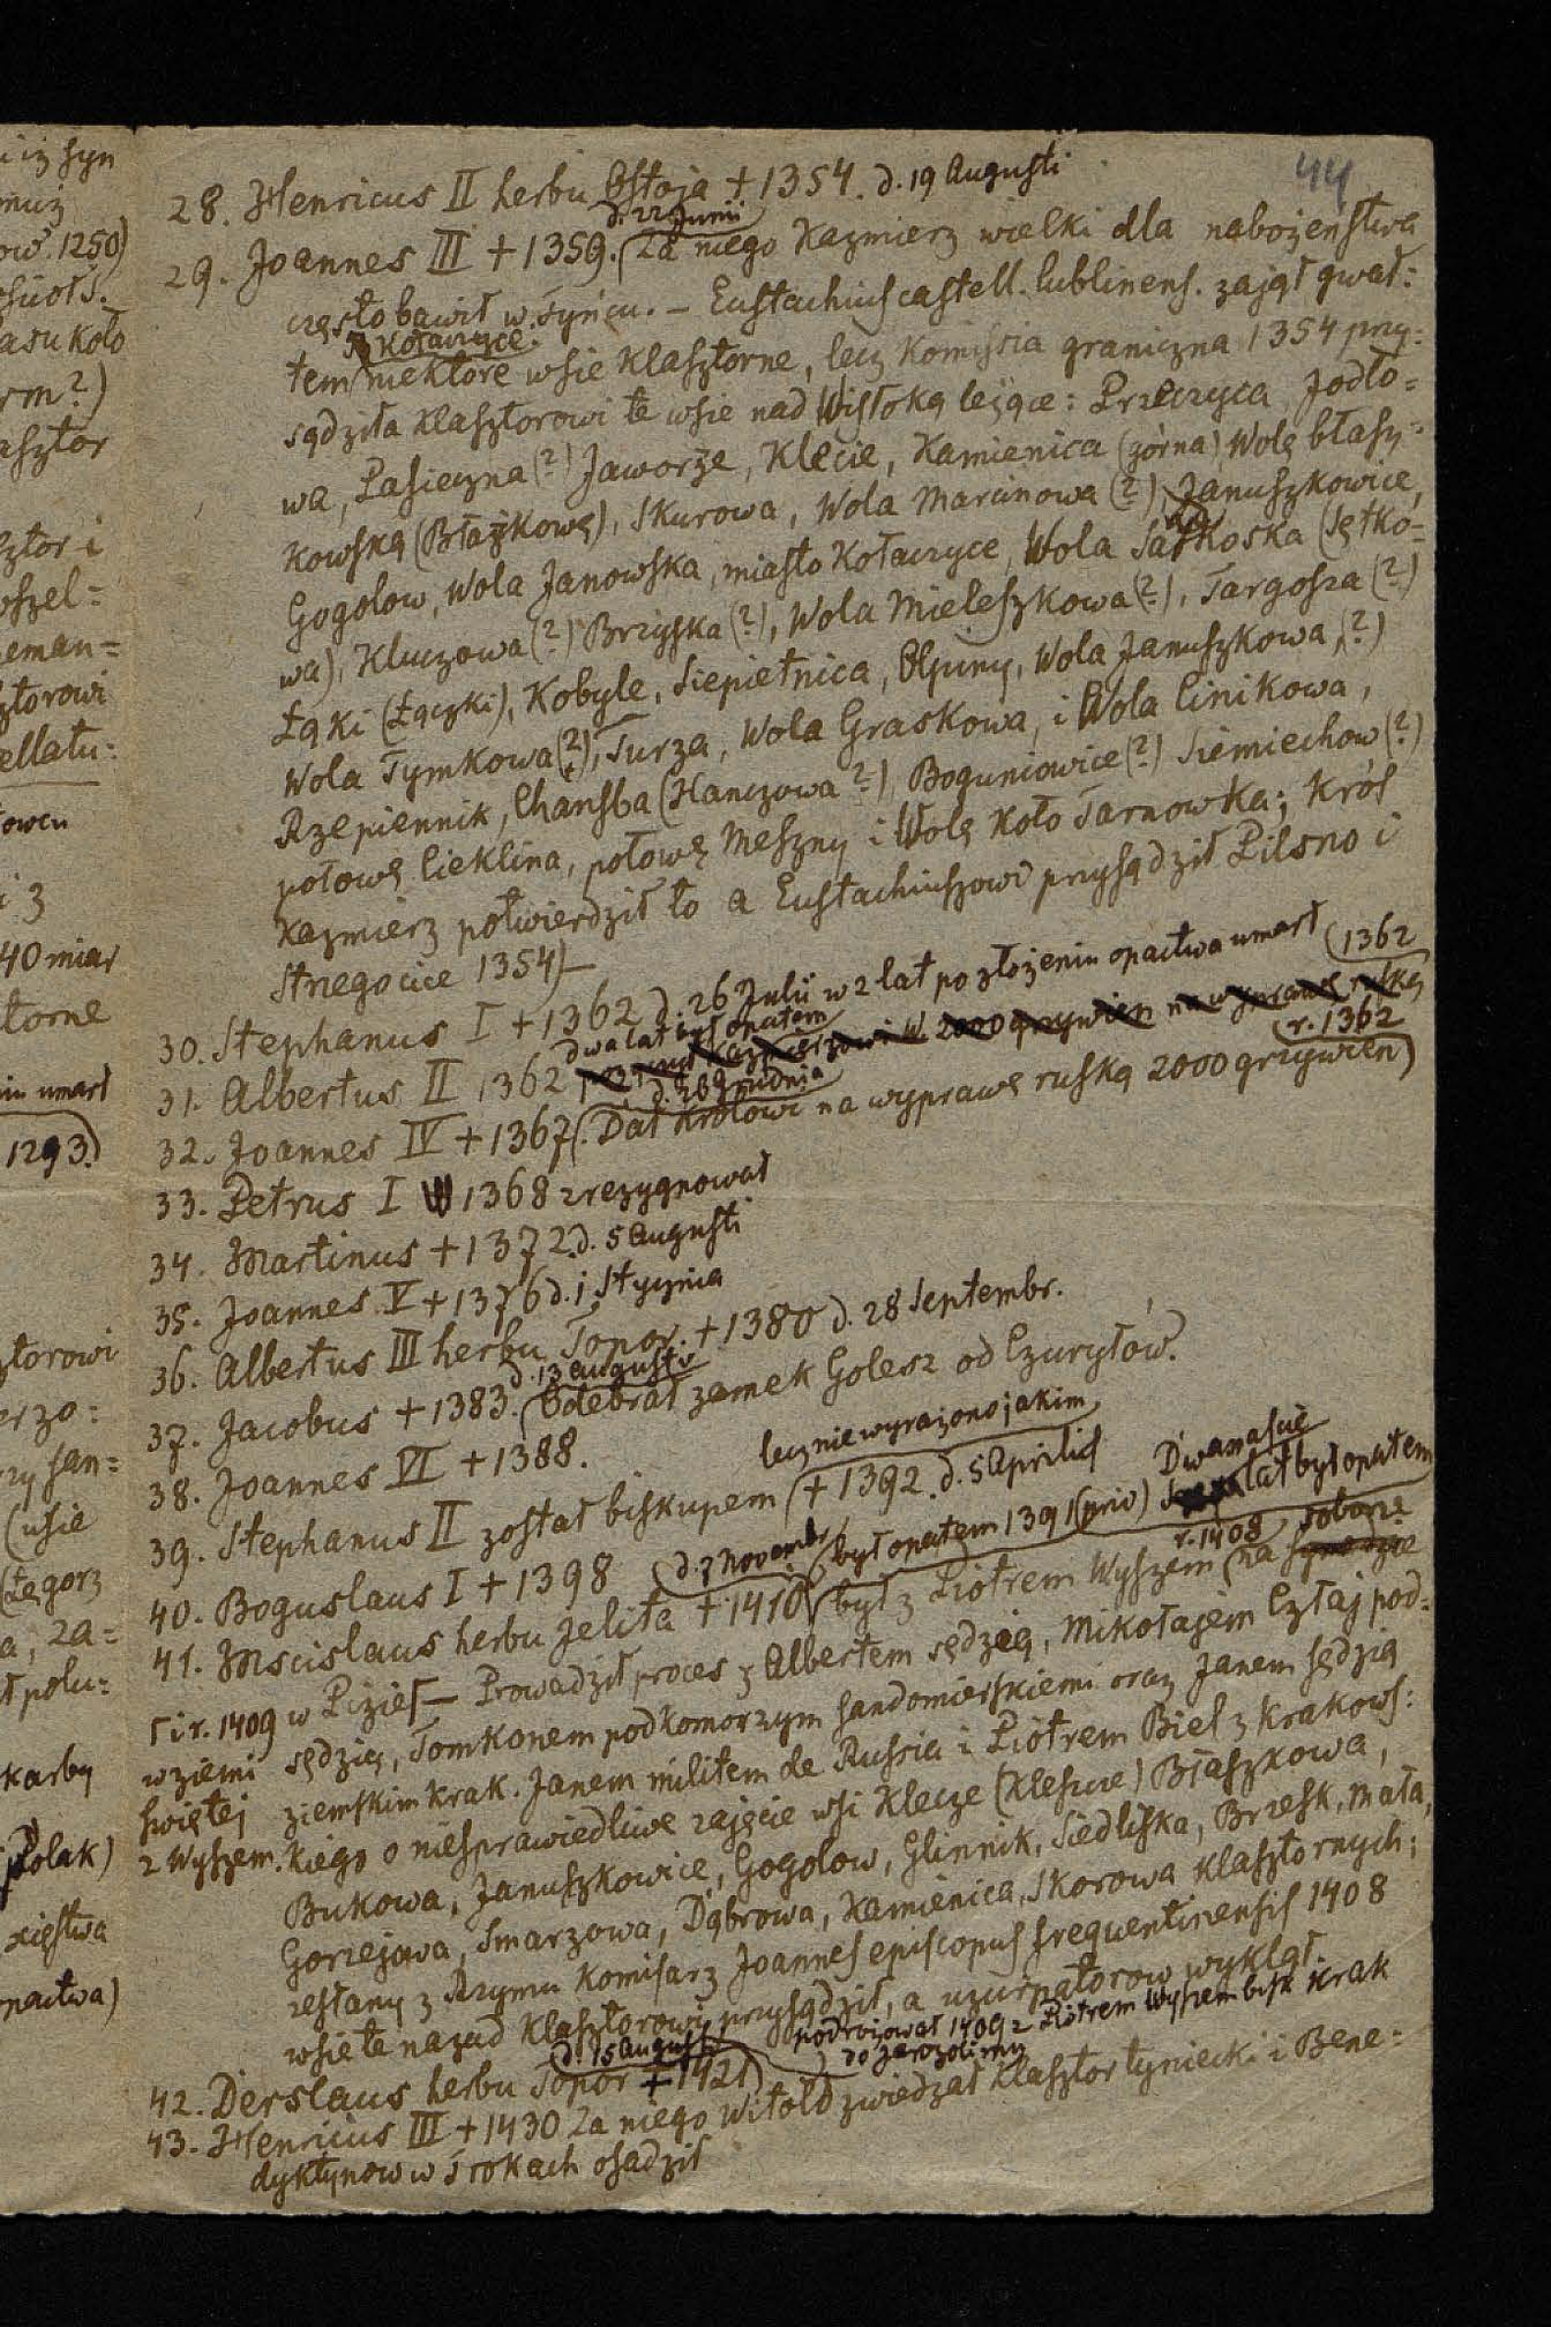 44
28. Henricus II herbu Ostoja + 1354. d. 19 Augusti
d. 22 Junii
29. Joannes III + 1359. (Za niego Kazmierz wielki dla nabożeństwa
często bawił w Tyńcu. – Eustachius castell. lublinens. zajął gwał:
Kołaczyce
tem niektóre wsie klasztorne, lecz Komissia graniczna 1354 przy:
sądziła klasztorowi te wsie nad Wisłoką leżące: Przeczyca, Jodło=
wa, Pasieczna (?) Jaworze, Klecie, Kamienica (górna) Wolę błaszy=
kowską (Błażkowę), Skurowa, Wola Marcinowa (?), Januszkowice,
Gogolow, Wola Janowska, miasto Kołaczyce, Wola Satkoska (Sętko=
wa), Kluczowa (?) Brzyska (?), Wola Mieleszkowa (?), Targosza (?)
Łąki (Łączki), Kobyle, Siepietnica, Olpiny, Wola Januszkowa (?)
Wola Tymkowa (?), Turza, Wola Graskowa, i Wola Cinikowa,
Rzepiennik, Chansba (Hanczowa ?) Boguniowice (?) Siemiechow (?)
połowę Cieklina, połowę Meszny i Wolę koło Tarnowka; Król
Kazmierz potwierdził to a Eustachiuszowi przysądził Pilsno i
Strzegocice 1354) –
30. Stephanus I + 1362 d. 26 Julii w 2 lat po złożeniu opactwa umarł (1362
dwa lat był opatem
31. Albertus II 1362 Kazmierzowi W. 2000 grzywien na wyprawę ruską
d. 26 Grudnia r. 1362
32. Joannes IV + 1367 (. Dał Królowi na wyprawę ruską 2000 grzywien)
33. Petrus I 1368 zrezygnował
34. Martinus + 1372. d. 5 Augusti
35. Joannes V + 1376 d. 1 Stycznia
36. Albertus III herbu Topor. + 1380 d. 28 Septembr.
d. 13 Augusti
37. Jacobus + 1383. (Odebrał zamek Golesz od Czuryłów.
38. Joannes VI + 1388.
lecz nie wyrażono jakim
39. Stephanus II został biskupem (+ 1392. d. 5 Aprilis
Dwanaście
40. Boguslaus I + 1398 (d. 7 Novembr. był opatem 1391 (prio) lat był opatem
r. 1408 soborze
41. Mscislaus herbu Jelita + 1410 (był z Piotrem Wyszem (na synodzie
i r. 1409 w Pizie – Prowadził proces z Albertem sędzią, Mikołajem Człaj pod=
w ziemi sędzią, Tomkonem podkomorzym sandomierskiemi oraz Janem sędzią
świętej ziemskim Krak. Janem militem de Russia i Piotrem Biel z Krakows:
z Wyszem. kiego o niesprawiedliwe zajęcie wsi Klecze (Kleszcze) Błaszkowa,
Bukowa, Januszkowice, Gogolow, Glinnik, Siedliska, Brzesk, Mała,
Gorzejowa, Smarzowa, Dąbrowa, Kamienica, Skorowa klasztornych;
zesłany z Rzymu Komisarz Joannes episcopus frequentinensis 1408
wsie te nazad klasztorowi przysądził, a uzurpatorow wyklął.
d. 15 Augusti podróżował 1409 z Piotrem Wyszem bisk Krak
do Jerozolimy
42. Derslaus herbu Topor + 1421)
43. Henricus III + 1430 Za niego Witold zwiedzał klasztor tyniecki i Bene=
dyktynow w Trokach osadził
i iż syn
ow. 1250)
asu koło
rm ?)
asztor
sztor i
oszel=
eman=
ztorowi
ellatu:
i z
40 miar
torne
iu umarł
1293.)
ztorowi
zy san=
(wsie
a, za=
ł polu=
karby
Polak)
xięstwa
pactwa)